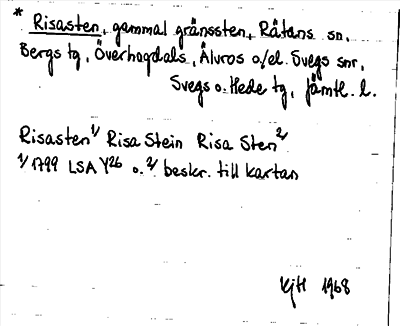 * Risasten, gammal gränssten, Rätans sn,
Bergs tg, Överhogdals, Älvros o/el. Svegs snr,
Svegs o. Hede tg, Jämtl. l.
Risasten 1/ Risa Stein Risa Sten 2/
1/ 1799 LSA Y26 o. 2/ beskr. till kartan
KjH 1968